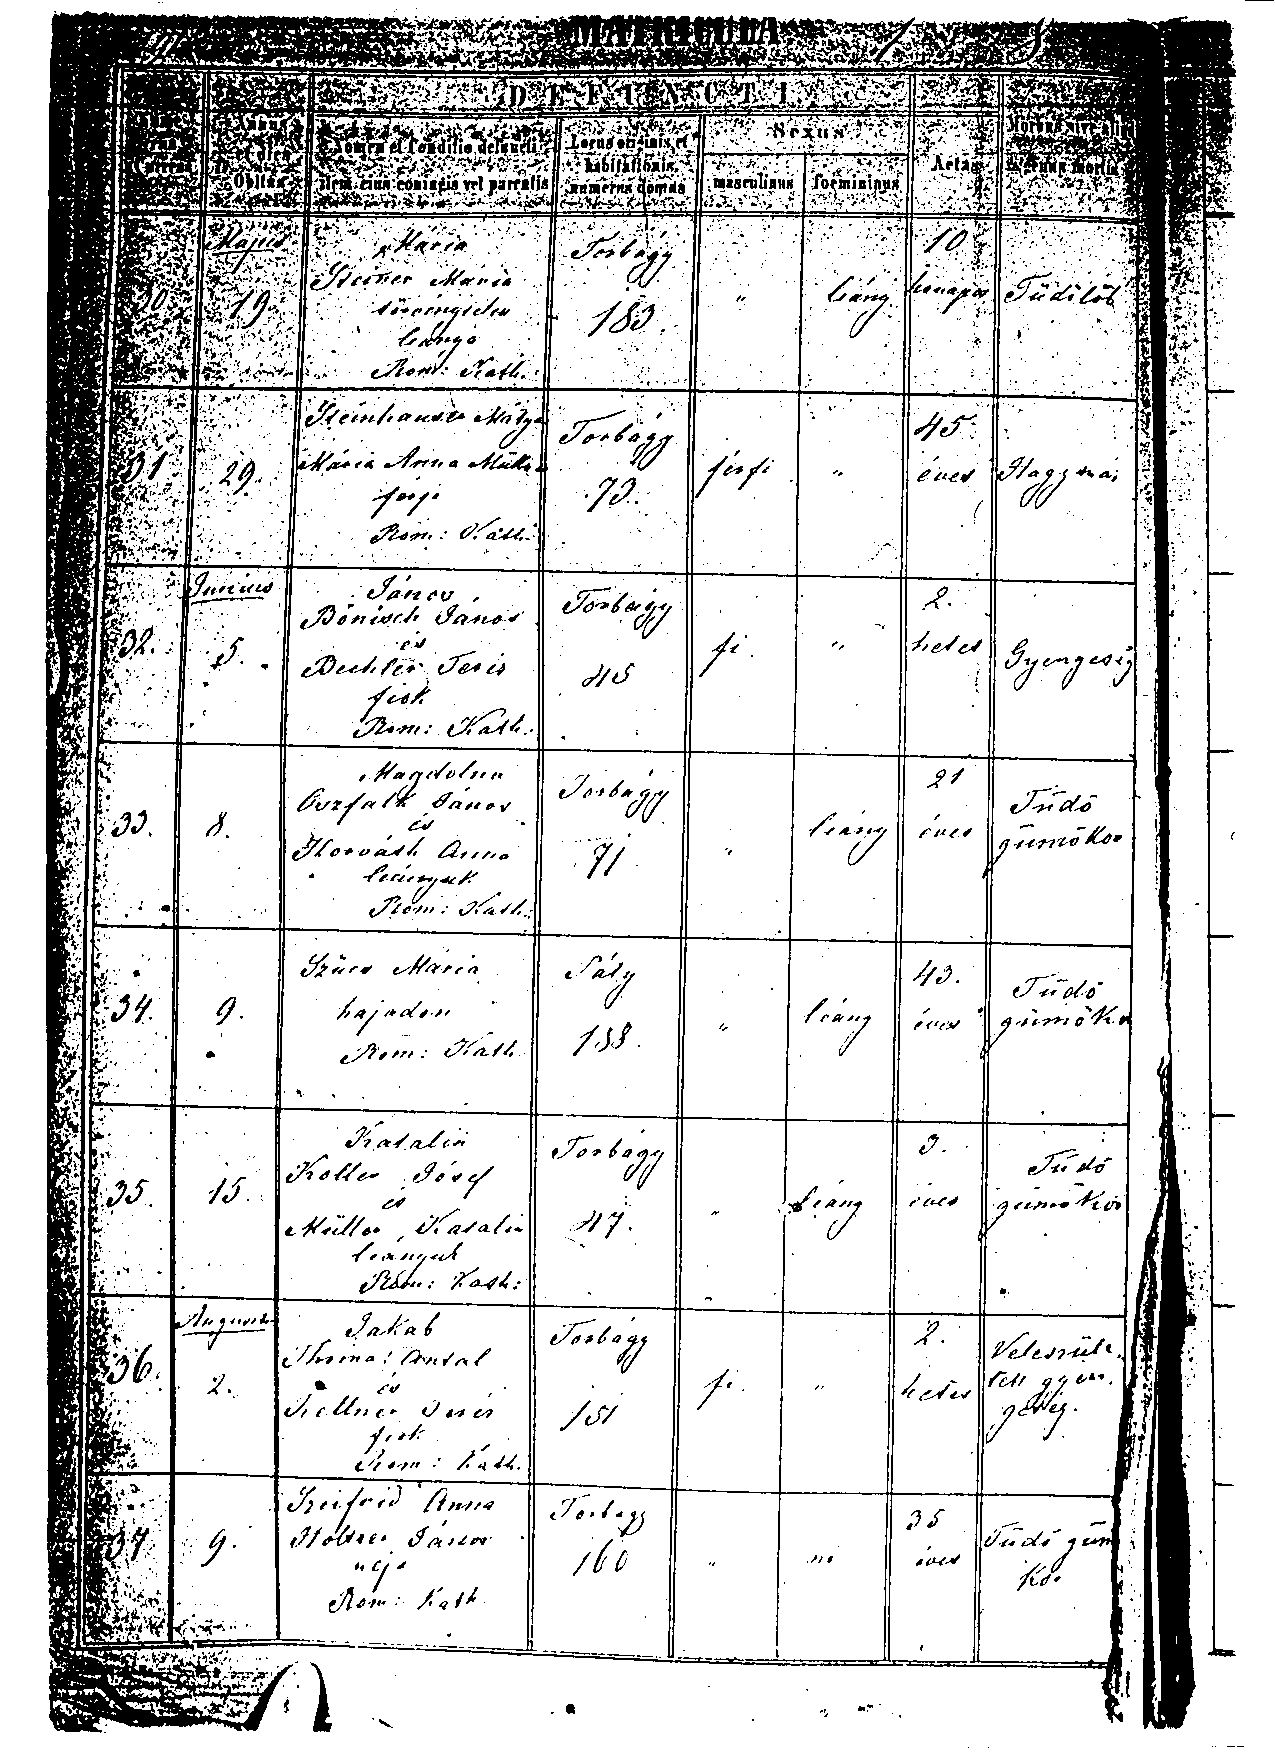 MATRICULA
DEFUNCTI
Nomen et Conditio defuncti
item eius coniugis vel parentis
Locus originis et
habitationis
numerus domus
Sexus
masculinus
foemininus
Aetas
Obitus
Május
19.
Mária
Steiner Mária
törvénytelen
leánya
Rom: Kath.
Torbágy
183.
"
leány
10
hónapos
Tüdőlob
31
29.
Mária Anna
férje
Rom: Kath.
Torbágy
73.
férfi
"
45.
éves
Hagymáz
32.
Junius
5.
János
Bönisch János
és
Bechler Teréz
fiok
Rom: Kath:
Torbágy
45
fi.
"
2.
hetes
Gyengeség
33.
8.
Magdolna
János
és
Horváth Anna
leányuk
Rom: Kath:
Torbágy
71
"
leány
21
éves
Tüdő
gümőkor
34.
9.
Szűcs Mária
hajadon
Rom: Kath
Páty
188.
"
leány
43.
éves
Tüdő
gümőkor
35.
15.
Katalin
Koller Jósef
és
Müller Katalin
leányuk
Rom: Kath:
Torbágy
47.
"
leány
3.
éves
Tüdő
gümőkór
36.
August
2.
Jakab
Thoma: Antal
és
Kellner Teréz
fiok
Rom: Kath.
Torbágy
151
fi.
"
2.
hetes
Veleszüle-
tett gyen-
geség.
37
9.
Szeifrid Anna
János
neje
Rom: Kath
Torbágy
160
"
nő
35
éves
Tüdő güm
kór